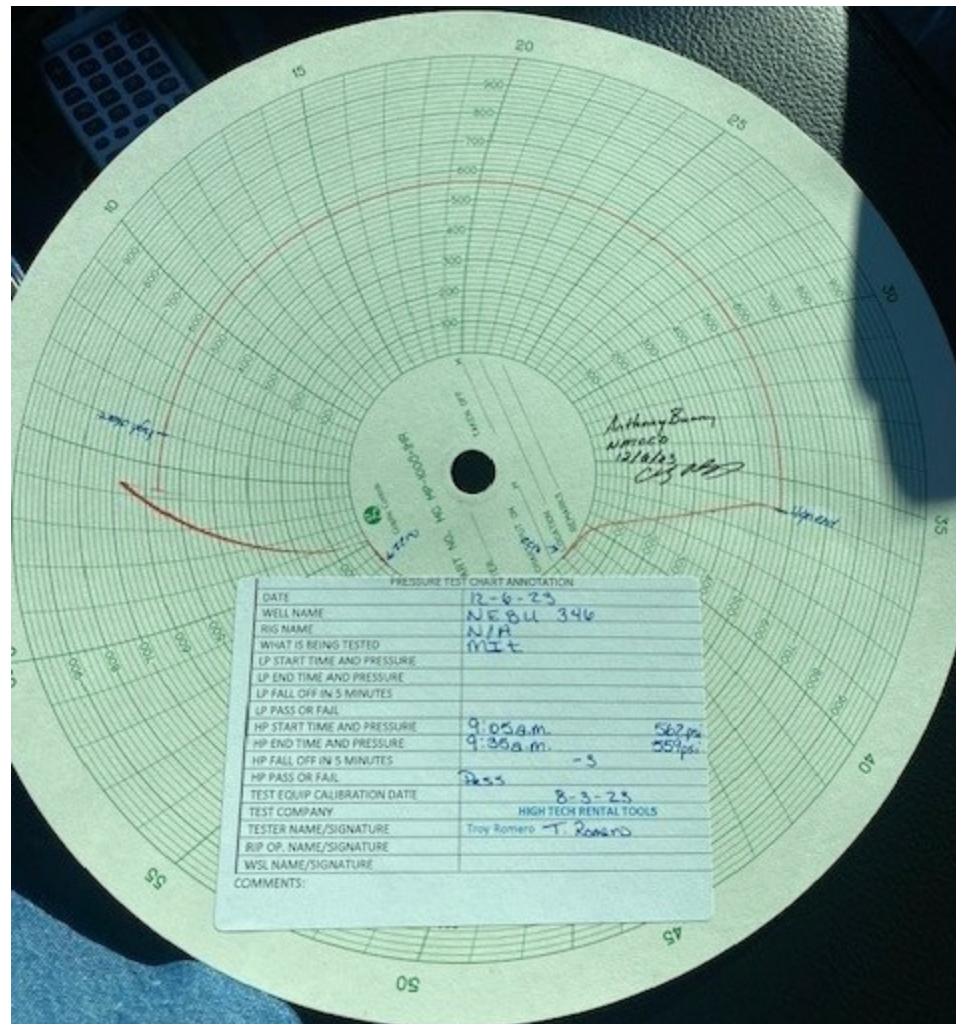 20
15
25
10
30
35
40
45
50
55
900
800
700
600
500
400
300
200
100
Anthony
NMOCD
PART NO. MC MP-1000-1HR
TAKEN OFF
LOCATION
REMARKS
zero
PRESSURE TEST CHART ANNOTATION
DATE 12-6-23
WELL NAME NEBU 346
RIG NAME N/A
WHAT IS BEING TESTED MIt
LP START TIME AND PRESSURE
LP END TIME AND PRESSURE
LP FALL OFF IN 5 MINUTES
LP PASS OR FAIL
HP START TIME AND PRESSURE 9:05a.m. 562psi
HP END TIME AND PRESSURE 9:35a.m. 559psi
HP FALL OFF IN 5 MINUTES -3
HP PASS OR FAIL Pass
TEST EQUIP CALIBRATION DATE 8-3-23
TEST COMPANY HIGH TECH RENTAL TOOLS
TESTER NAME/SIGNATURE Troy Romero T. Romero
RIP OP. NAME/SIGNATURE
WSL NAME/SIGNATURE
COMMENTS: